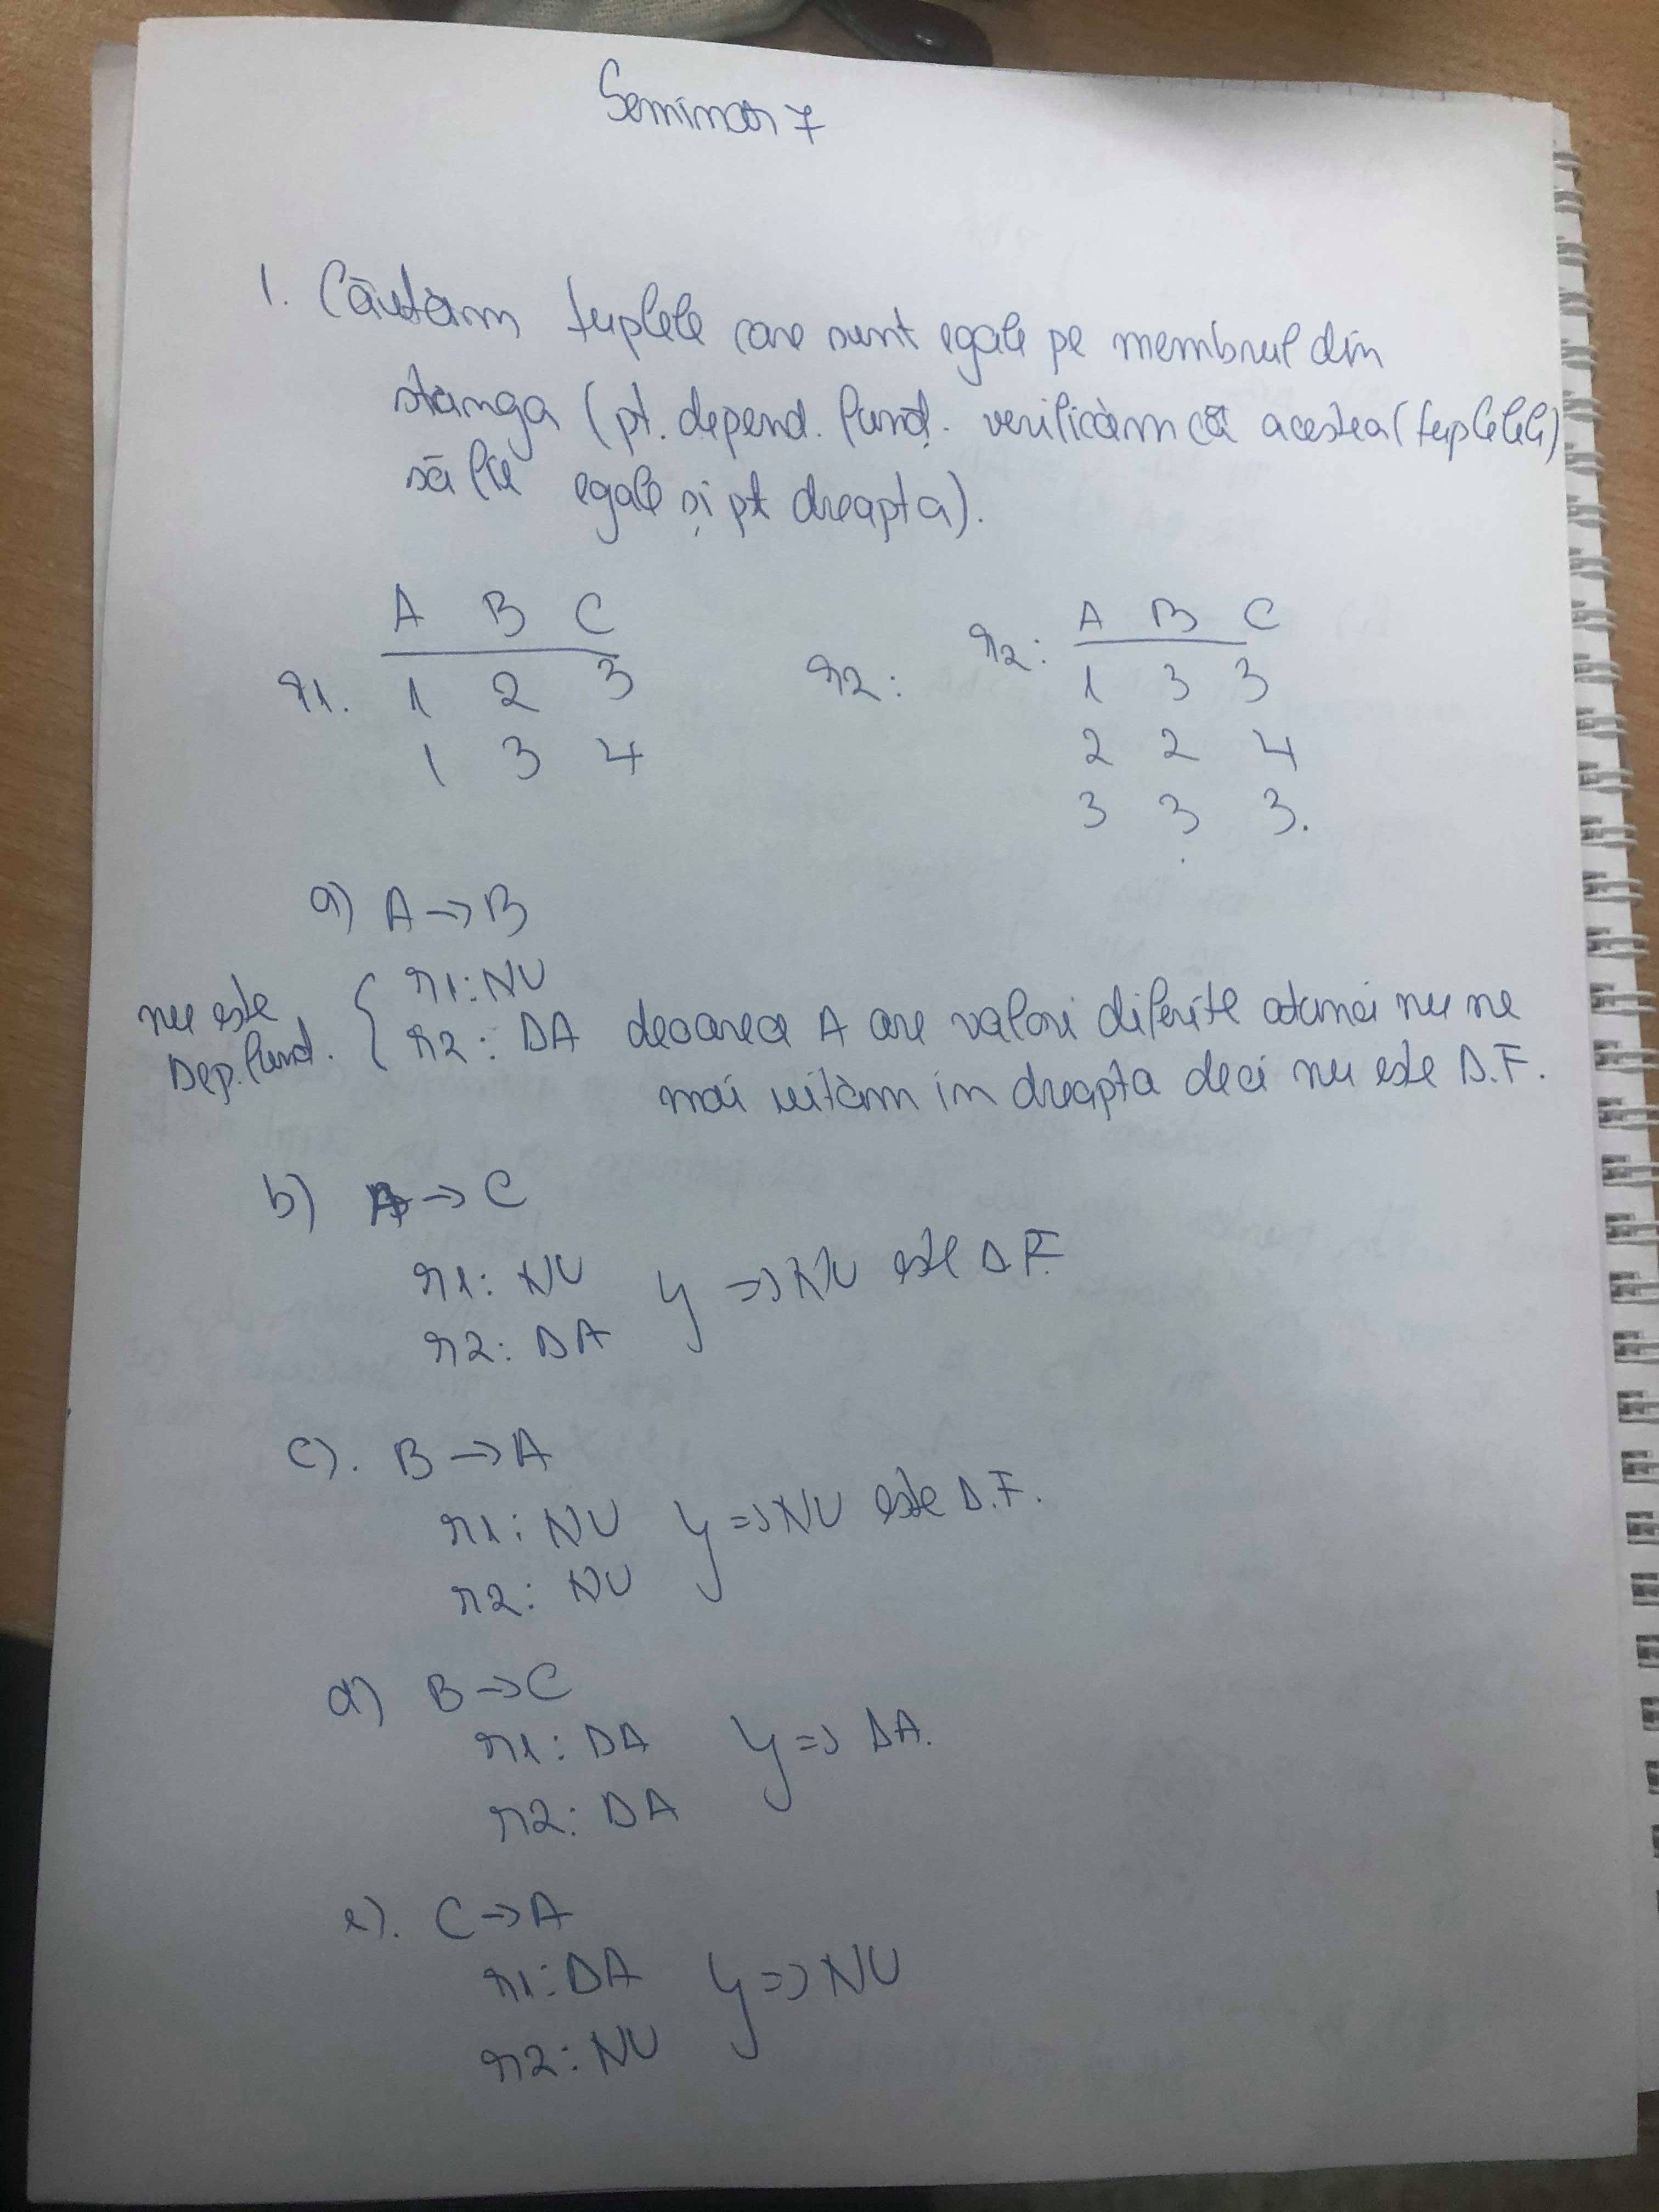 Seminar 7
1. Căutăm tuplele care sunt egale pe membrul din
stanga (pt. depend. funcț. verificăm că acestea (tuplele)
să fie egale și pt dreapta).
A B C
r1. 1 2 3
1 3 4
r2: r2: A B C
1 3 3
2 2 4
3 3 3.
a) A → B
nu este Dep. funcț. { r1: NU
r2: DA deoarece A are valori diferite atunci nu ne
mai uităm in dreapta deci nu este D.F.
b) A → C
r1: NU } => NU este D.F.
r2: DA
c). B → A
r1: NU } => NU este D.F.
r2: NU
d) B → C
r1: DA } => DA.
r2: DA
e). C → A
r1: DA } => NU
r2: NU